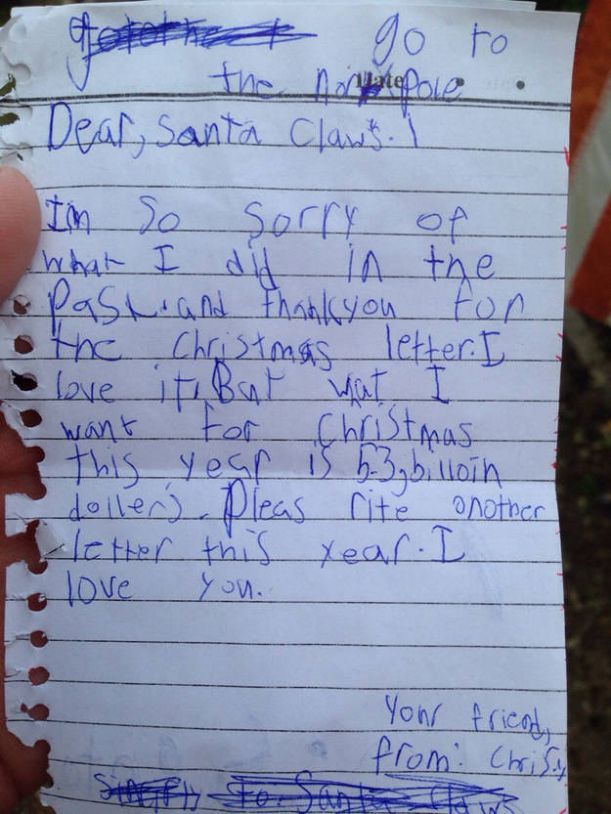 go to
the nor pole
Date
Dear, Santa Claws.
Im So Sorry of
what I did in the
past. and thankyou for
the Christmas letter. I
love it, But wat I
want for Christmas
this year is 53,billoin
dollers. Pleas rite onother
letter this year. I
love you.
Your friend,
from: Chris
to Santa Claws